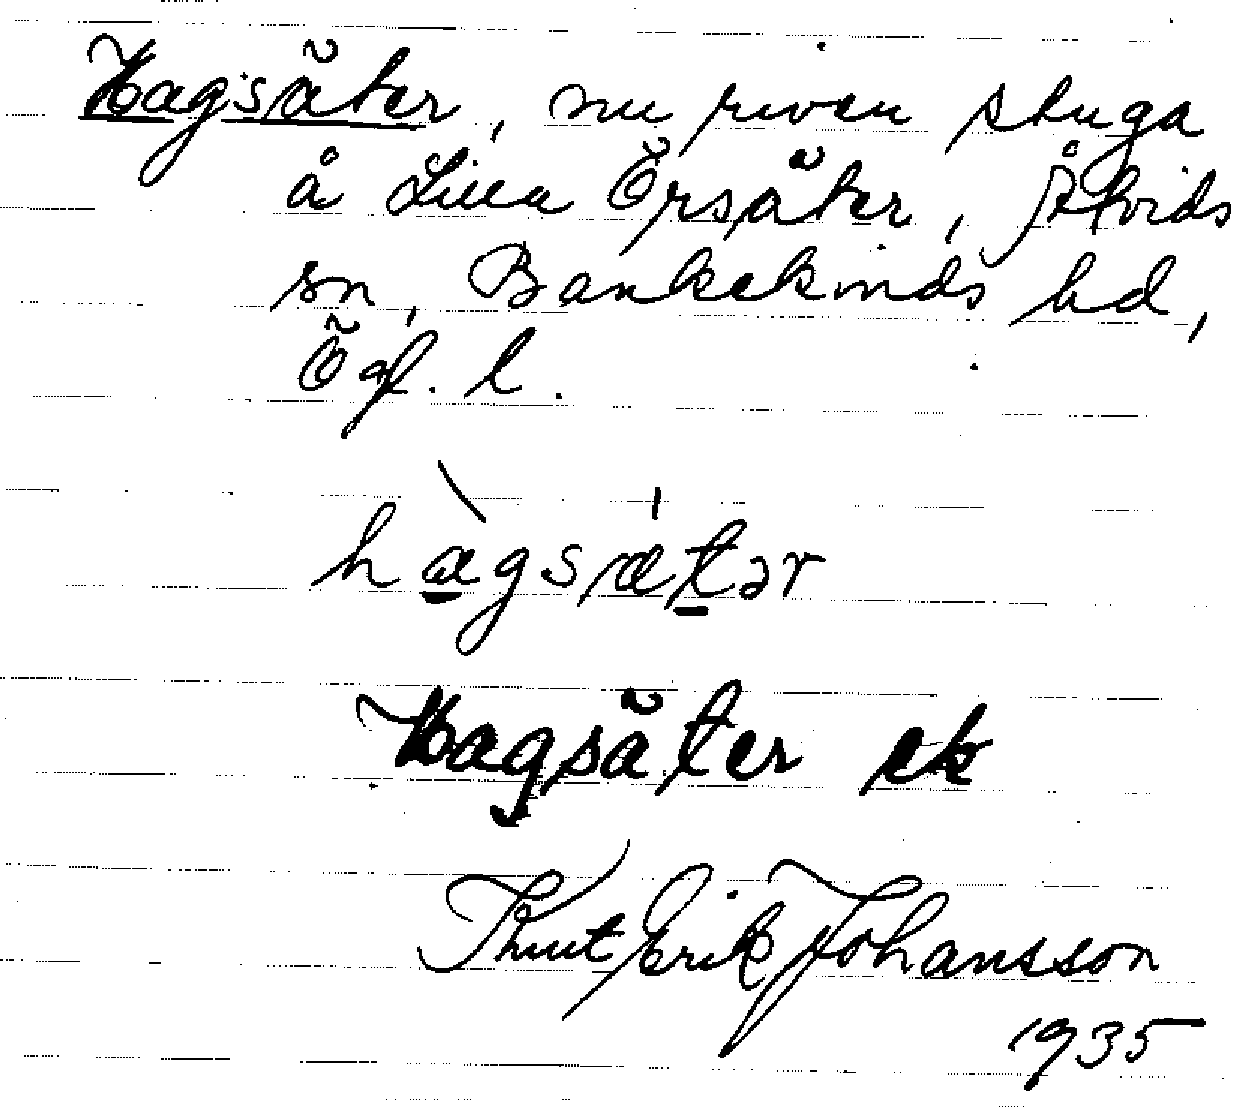 Hagsäter, nu riven stuga
å Lilla Örsäter, Åtvids
sn, Bankekinds hd,
Ögl. l.
hàgsætər
Hagsäter ek
Knut Erik Johansson
1935